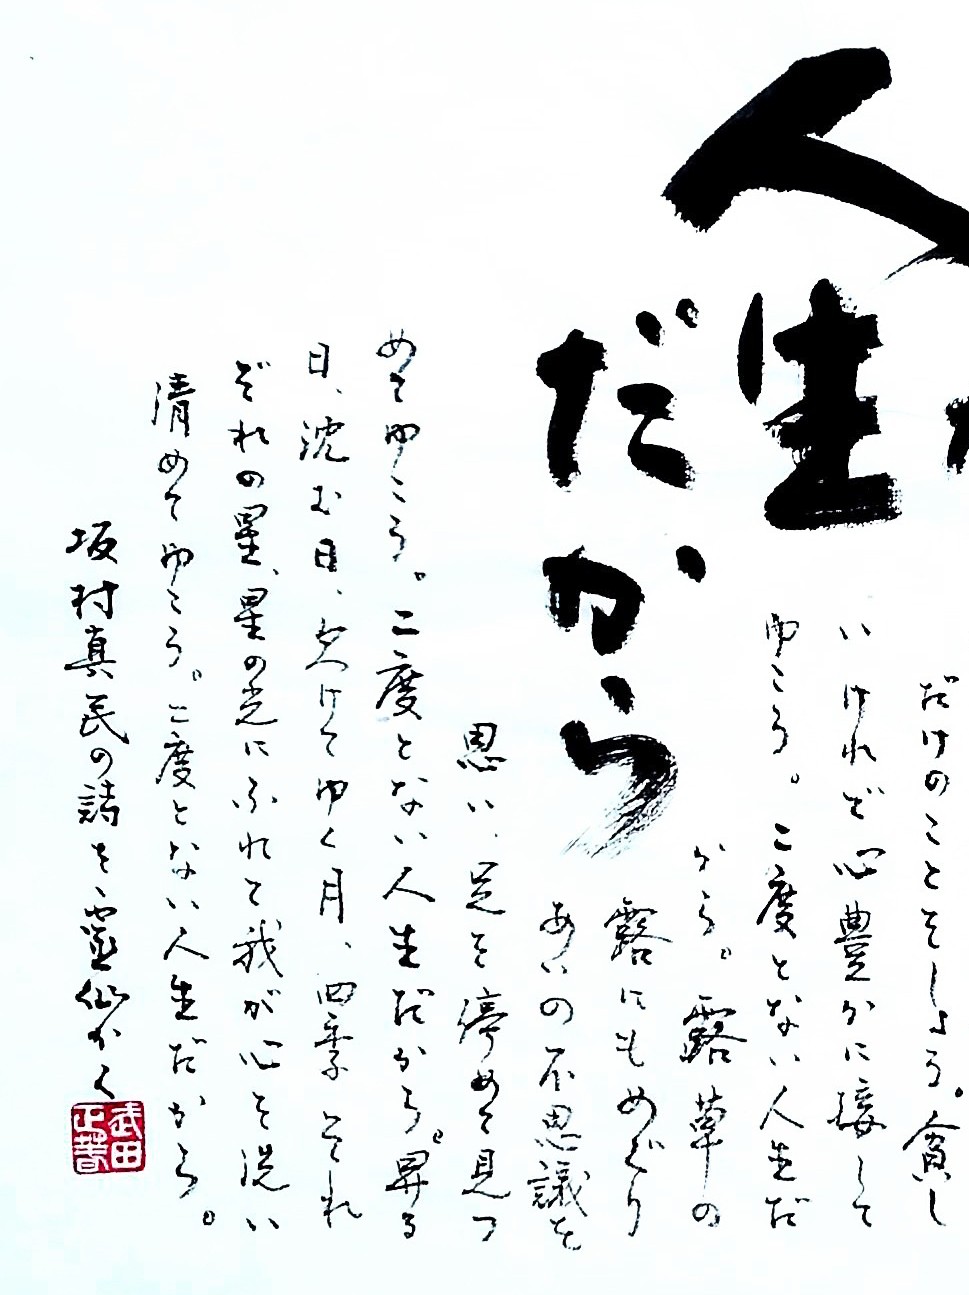 人生
だから
だけのことをしよう。貧し
いけれど心豊かに接して
ゆこう。二度とない人生だ
から。露草の
露にもめぐり
あいの不思議を
思い、足を停めて見つ
めてゆこう。二度とない人生だから。昇る
日、沈む日、欠けてゆく月、四季それ
ぞれの星、星の光にふれて我が心を洗い
清めてゆこう。二度とない人生だから。
坂村真民の詩を 霊仙かく
武田
正